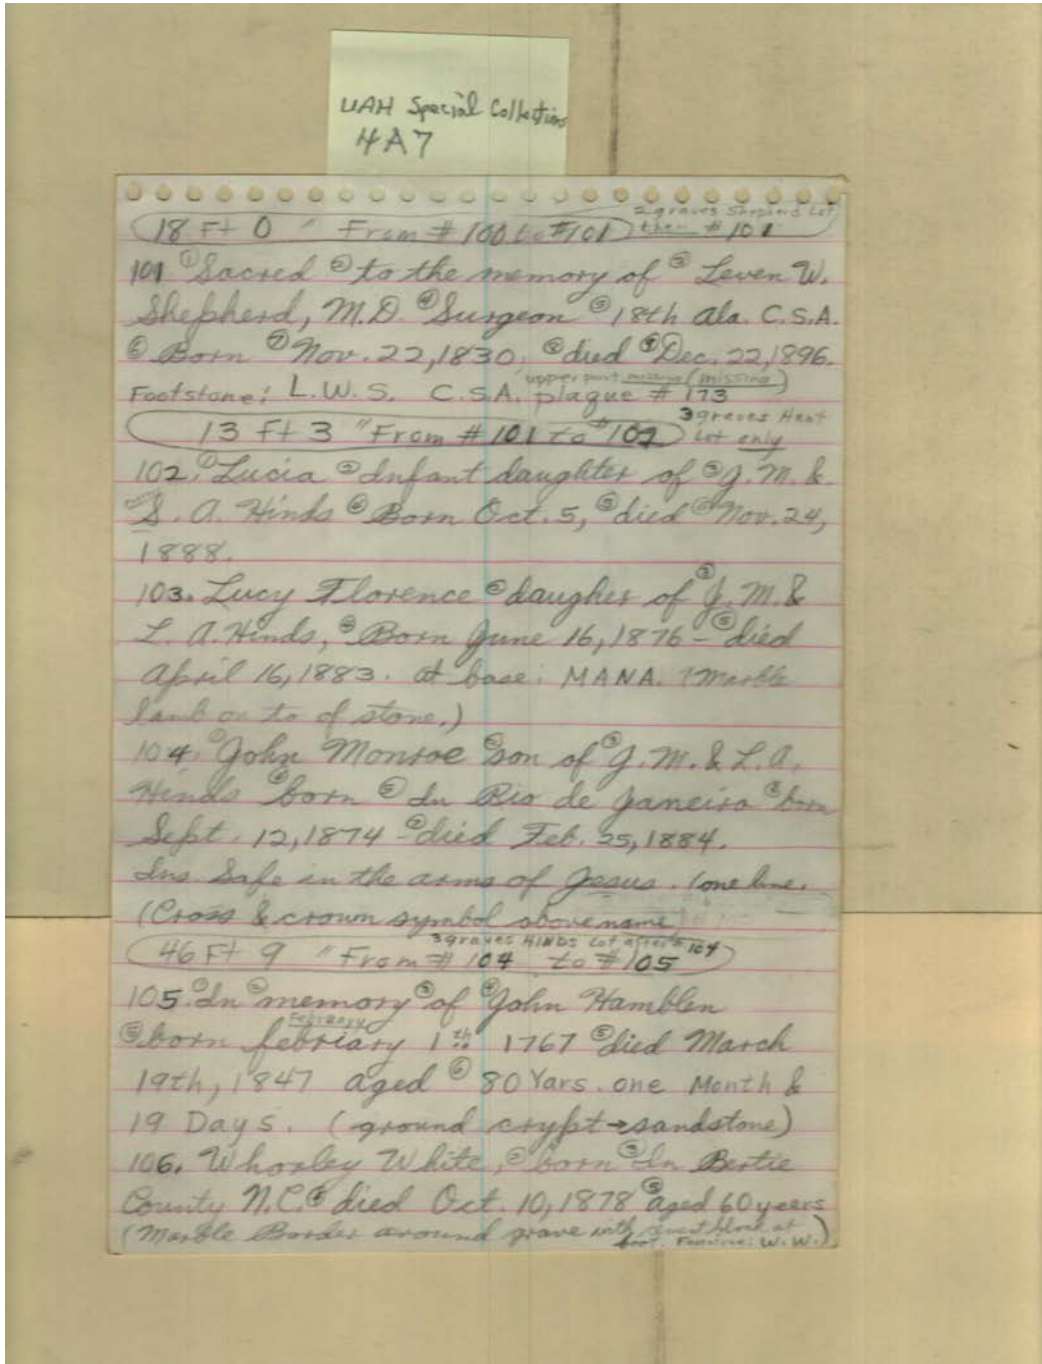 UAH Special Collections
4A7
2 graves Shepherd Lot
18 Ft 0 " From # 100 to #101 then # 101
101 ① Sacred ② to the memory of ③ Leven W.
Shepherd, M.D. ④ Surgeon ⑤ 18th Ala. C.S.A.
⑥ Born ⑦ Nov. 22, 1830. ⑧ died ⑨ Dec. 22, 1896.
upper part missing (missing)
Footstone: L.W.S. C.S.A. plaque # 173
3 graves
13 Ft 3 " From # 101 to # 102 Lot only
102. ① Lucia ② Infant daughter of ③ J. M. &
S. A. Hinds ④ Born Oct. 5, ⑤ died ⑥ Nov. 24,
1888.
103. Lucy Florence ② daugher of ③ J. M. &
L. A. Hinds, ④ Born June 16, 1876 - ⑤ died
April 16, 1883. at base: MANA. (Marble
lamb on to of stone.)
104. ① John Monroe ② son of ③ J. M. & L. A.
Hinds ④ born ⑤ In Rio de Janeiro ⑥ born
Sept. 12, 1874 - ⑦ died Feb. 25, 1884.
Ins. Safe in the arms of Jesus. (one line.
(Cross & crown symbol above name)
3 graves HINDS Lot after # 104
46 Ft 9 " From # 104 to # 105
105. ① In ② memory ③ of ④ John Hamblen
February
⑤ born febriary 1th 1767 ⑤ died March
19th, 1847 aged ⑥ 80 Yars. one Month &
19 Days. (ground crypt → sandstone)
106. Whorley White, ② born ③ In Bertie
County N.C. ④ died Oct. 10, 1878 ⑤ aged 60 years
(Marble Border around grave with block at
foot. Footstone: W. W.)